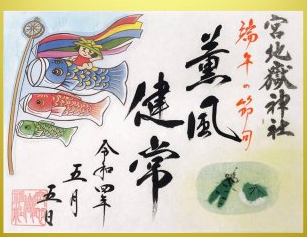 宮地嶽神社
端午の節句
薫風
健常
令和四年
五月
五日